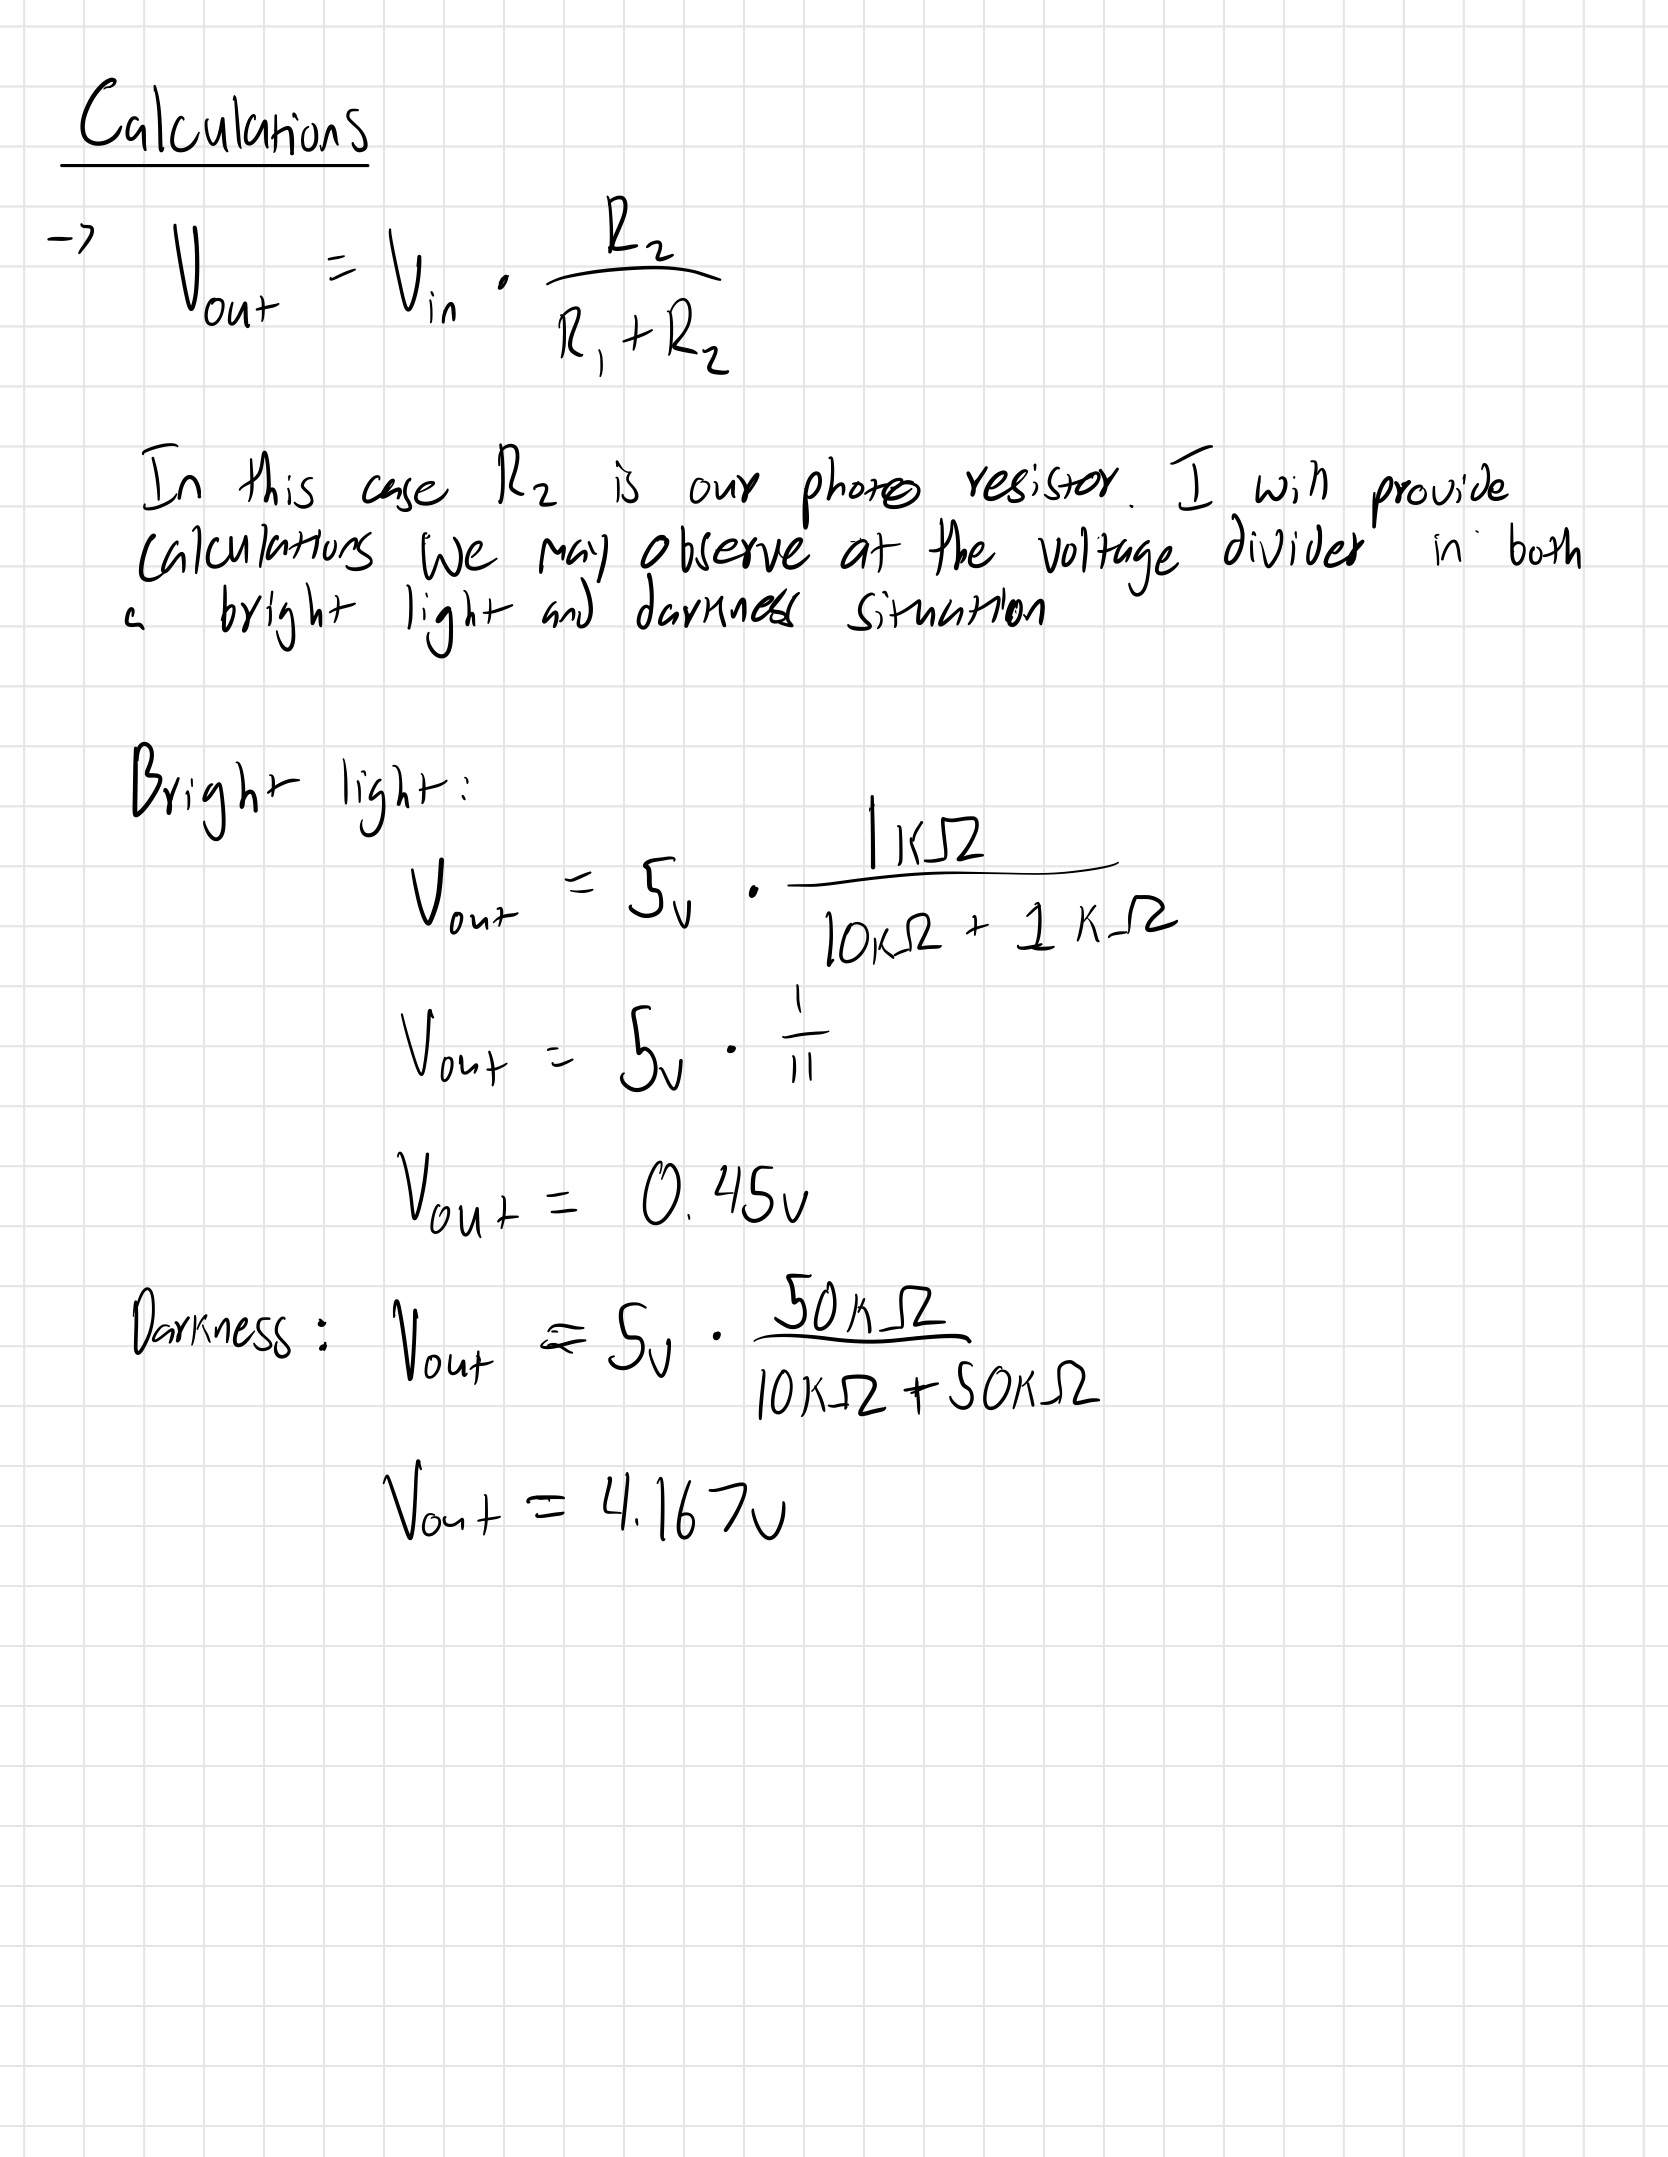 Calculations
-> Vout = Vin · R2 / (R1 + R2)
In this case R2 is our photo resistor. I will provide
calculations we may observe at the voltage divider in both
a bright light and darkness situation
Bright light:
Vout = 5v · 1kΩ / (10kΩ + 1kΩ)
Vout = 5v · 1/11
Vout = 0.45v
Darkness: Vout = 5v · 50kΩ / (10kΩ + 50kΩ)
Vout = 4.167v